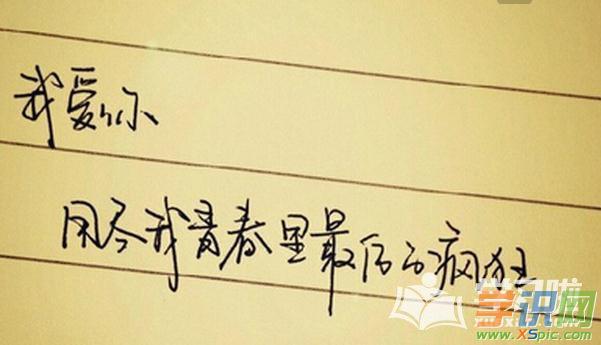 我爱你
用尽我青春里最后的疯狂
学识网
www.XSpic.com